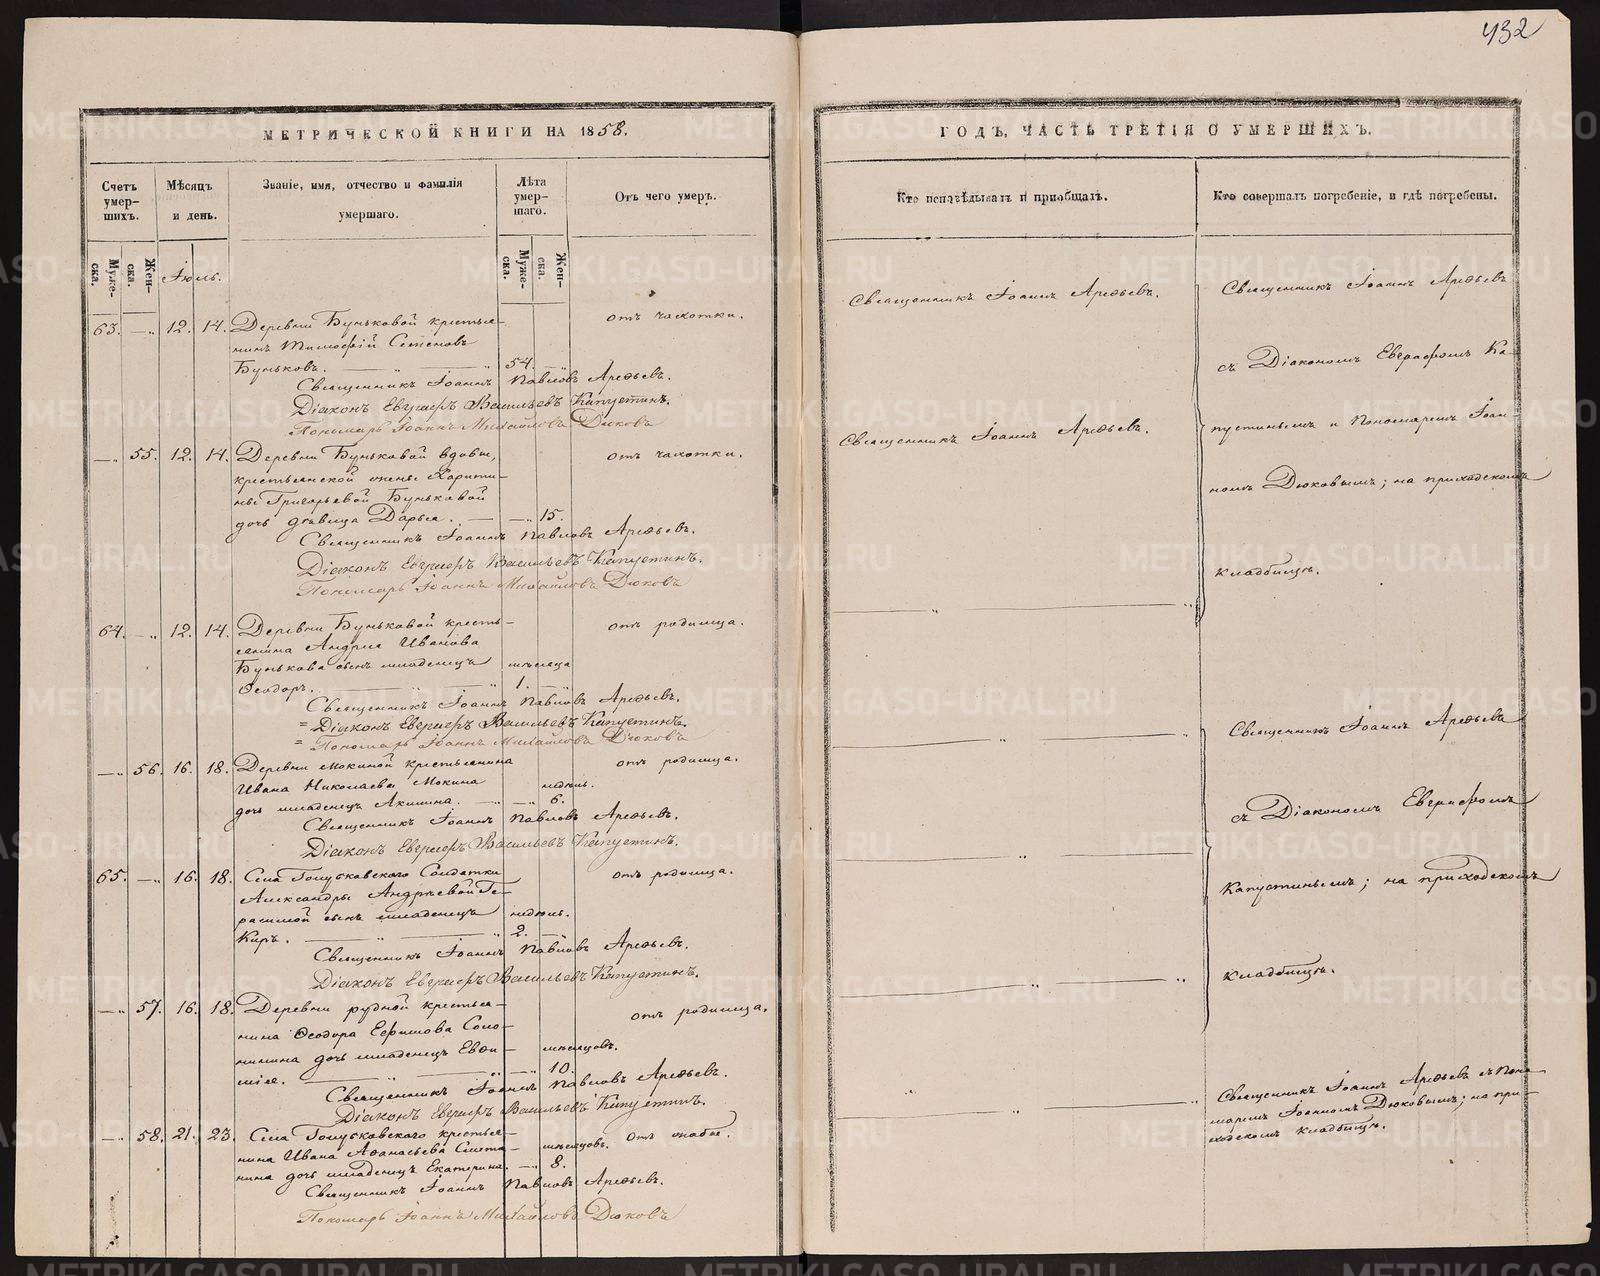 432
МЕТРИЧЕСКОЙ КНИГИ НА 1858.
Счетъ умер-шихъ.
Мѣсяцъ и день.
Званіе, имя, отчество и фамилія умершаго.
Лѣта умер-шаго.
Отъ чего умеръ.
Муже-ска.
Жен-ска.
Іюль.
Муже-ска.
Жен-ска.
63. —„ 12. 14. Деревни Буньковой крестья-
нинъ Тимофій Семеновъ
Буньковъ. 54. отъ чахотки.
Священникъ Іоаннъ Павловъ Арефьевъ.
Діаконъ Евграфъ Васильевъ Капустинъ.
Пономарь Іоаннъ Михайловъ Дюковъ
—„ 55. 12. 14. Деревни Буньковой вдовы,
крестьянской жены Харити-
ны Григорьевой Буньковой
дочь дѣвица Дарья. —„ 15. отъ чахотки.
Священникъ Іоаннъ Павловъ Арефьевъ.
Діаконъ Евграфъ Васильевъ Капустинъ.
Пономарь Іоаннъ Михайловъ Дюковъ
64. —„ 12. 14. Деревни Буньковой кресть-
янина Андрея Иванова
Бунькова сынъ младенецъ мѣсяца
Ѳеодоръ. 1. отъ родимца.
Священникъ Іоаннъ Павловъ Арефьевъ.
= Діаконъ Евграфъ Васильевъ Капустинъ.
= Пономарь Іоаннъ Михайловъ Дюковъ
—„ 56. 16. 18. Деревни Мокиной крестьянина
Ивана Николаева Мокина недѣль.
дочь младенецъ Акилина. —„ 6. отъ родимца.
Священникъ Іоаннъ Павловъ Арефьевъ.
Діаконъ Евграфъ Васильевъ Капустинъ.
65. —„ 16. 18. Села Голубковскаго Солдатки
Александры Андреевой Ге-
расимой сынъ младенецъ недѣль.
Киръ. 2. отъ родимца.
Священникъ Іоаннъ Павловъ Арефьевъ.
Діаконъ Евграфъ Васильевъ Капустинъ.
—„ 57. 16. 18. Деревни рудной крестья-
нина Ѳеодора Ефимова Соло-
нинина дочь младенецъ Евѳи- мѣсяцовъ.
мія. —„ 10. отъ родимца.
Священникъ Іоаннъ Павловъ Арефьевъ.
Діаконъ Евграфъ Васильевъ Капустинъ.
—„ 58. 21. 23. Села Голубковскаго крестья-
нина Ивана Аѳанасьева Смета- мѣсяцовъ.
нина дочь младенецъ Екатерина. —„ 8. отъ
Священникъ Іоаннъ Павловъ Арефьевъ.
Пономарь Іоаннъ Михайловъ Дюковъ
ГОДЪ, ЧАСТЬ ТРЕТІЯ О УМЕРШИХЪ.
Кто исповѣдывалъ и пріобщалъ.
Кто совершалъ погребеніе, и гдѣ погребены.
Священникъ Іоаннъ Арефьевъ.
Священникъ Іоаннъ Арефьевъ.
Священникъ Іоаннъ Арефьевъ
съ Діакономъ Евграфомъ Ка-
пустинымъ и Пономаремъ Іоан-
номъ Дюковымъ; на приходскомъ
кладбищѣ.
Священникъ Іоаннъ Арефьевъ
съ Діакономъ Евграфомъ
Капустинымъ; на приходскомъ
кладбищѣ.
Священникъ Іоаннъ Арефьевъ съ Поно-
маремъ Іоанномъ Дюковымъ; на при-
ходскомъ кладбищѣ.
METRIKI.GASO-URAL.RU